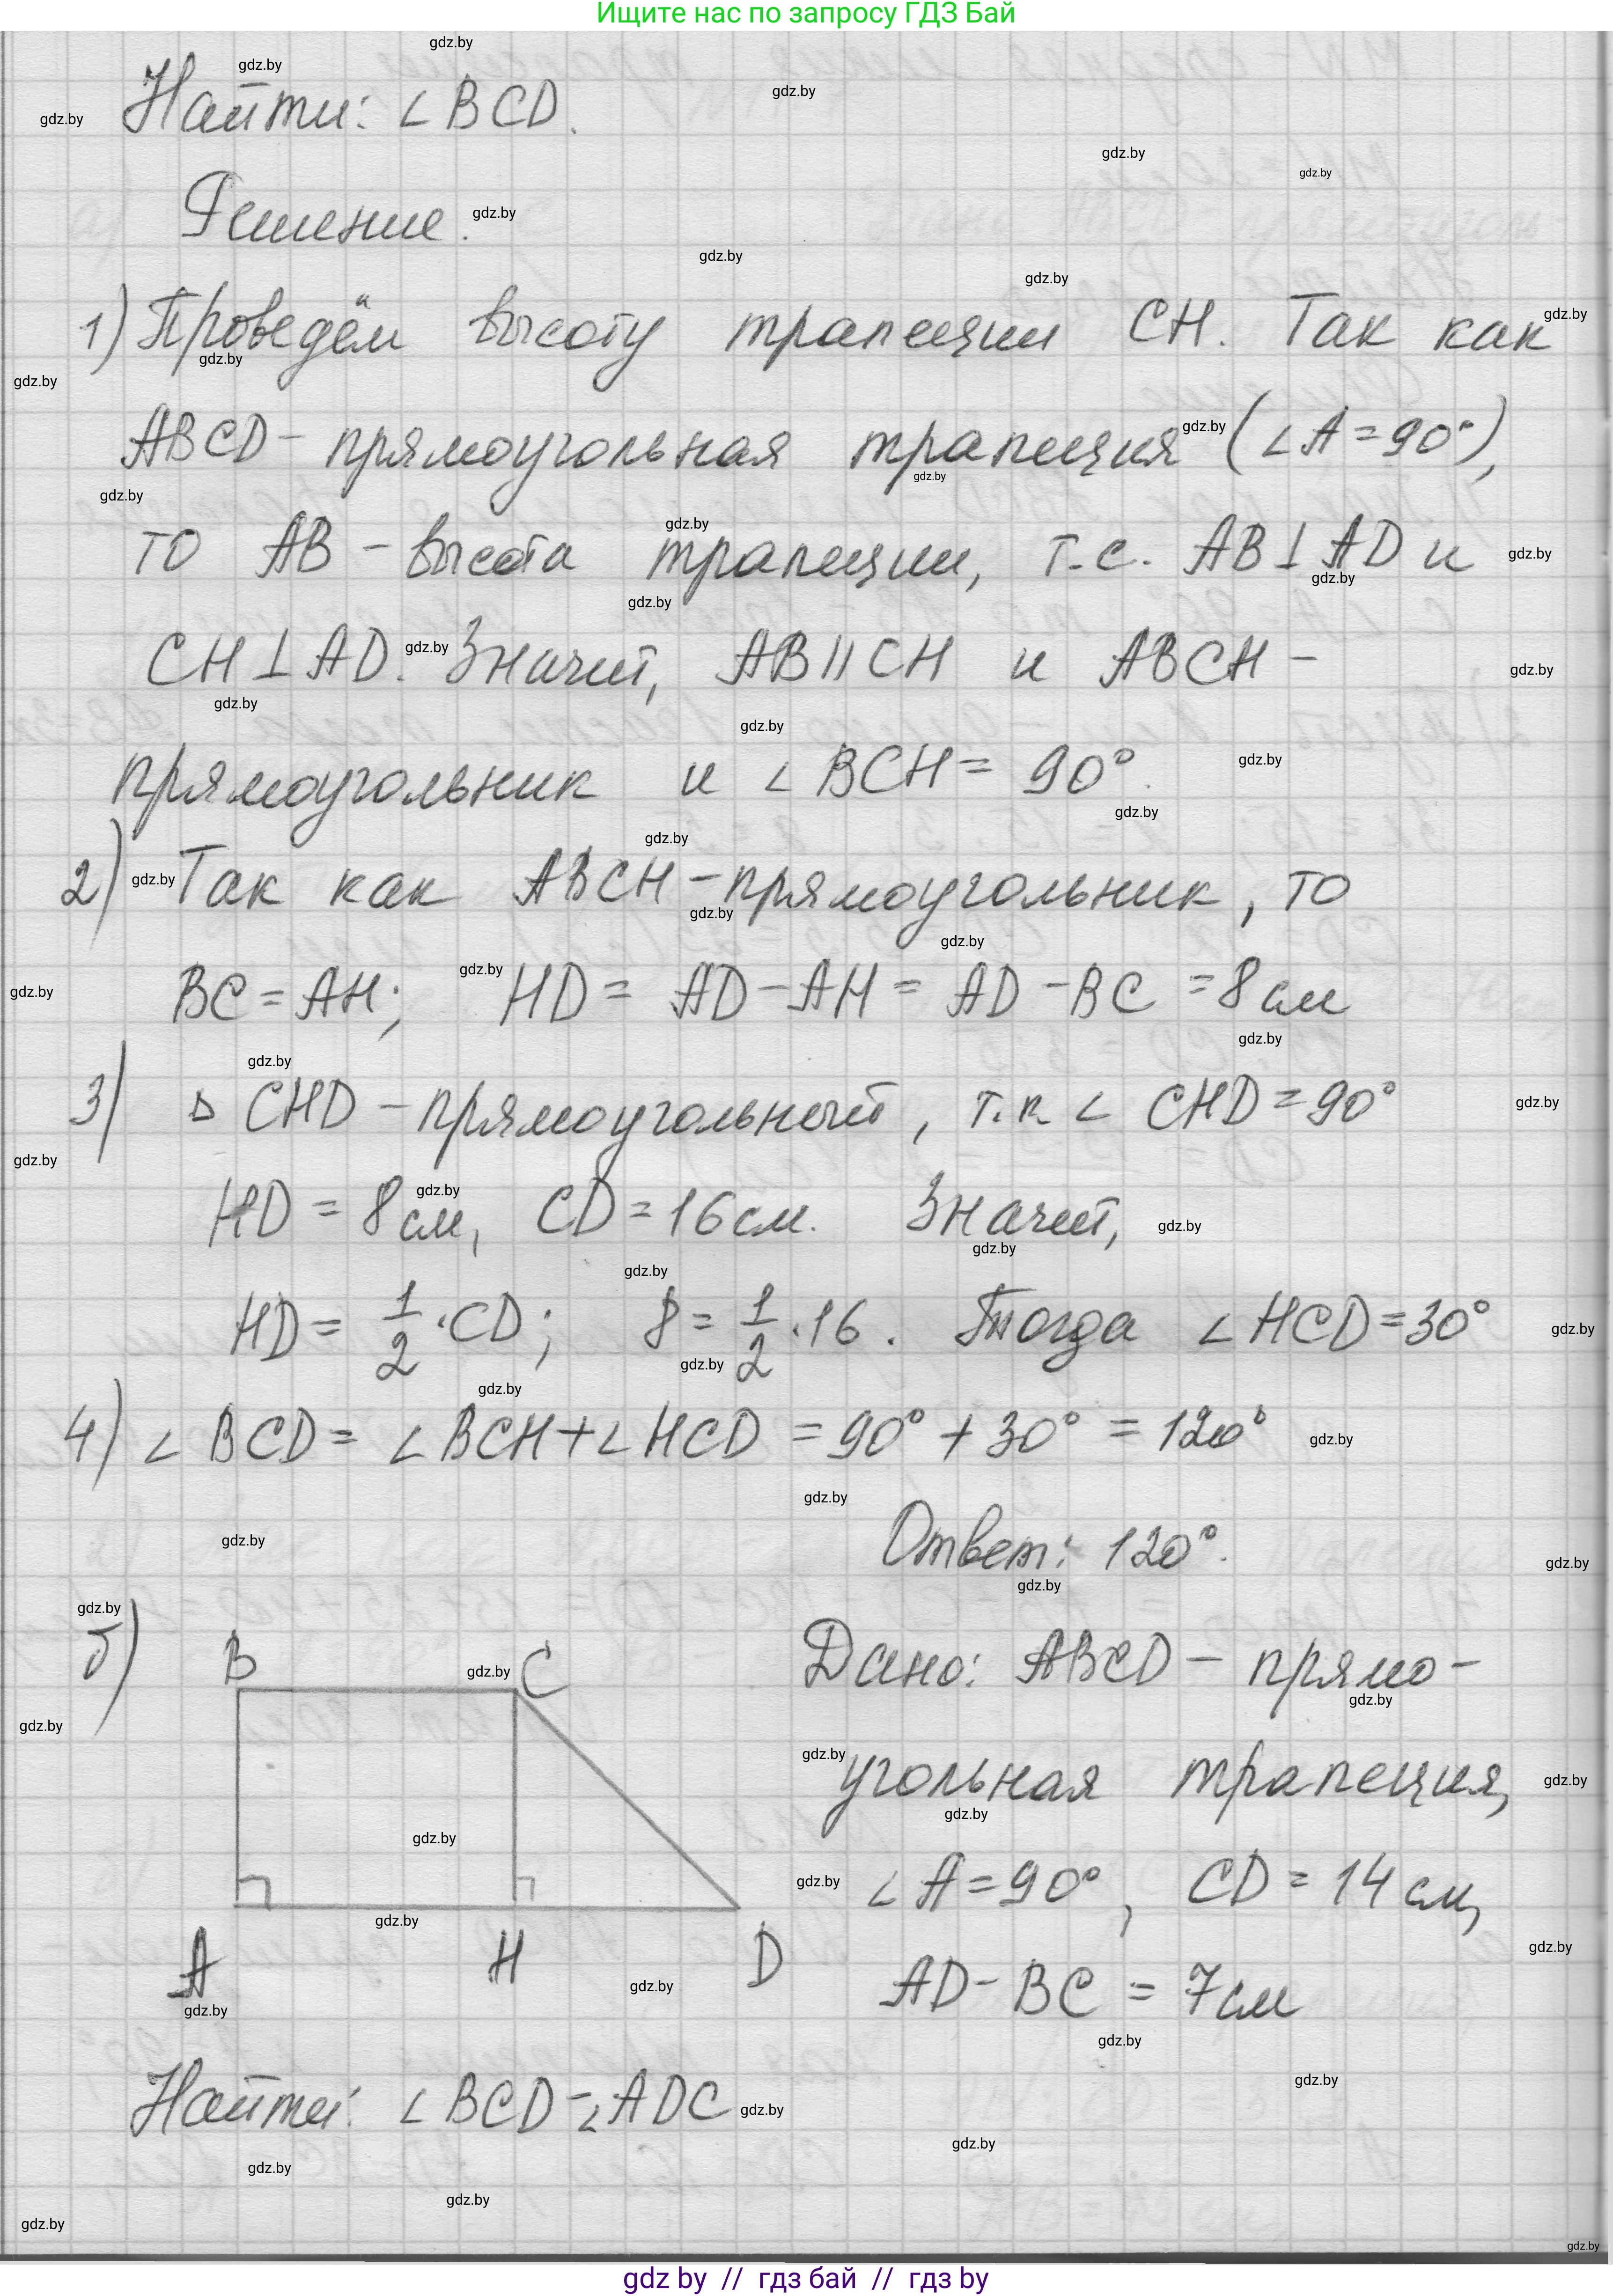 Ищите нас по запросу ГДЗ Бай
Найти: ∠BCD.
Решение.
1) Проведём высоту трапеции CH. Так как
ABCD – прямоугольная трапеция (∠A = 90°),
то AB – высота трапеции, т.е. AB ⊥ AD и
CH ⊥ AD. Значит, AB || CH и ABCH –
прямоугольник и ∠BCH = 90°.
2) Так как ABCH – прямоугольник, то
BC = AH; HD = AD – AH = AD – BC = 8 см
3) Δ CHD – прямоугольный, т.к ∠ CHD = 90°
HD = 8 см, CD = 16 см. Значит,
HD = 1/2 · CD; 8 = 1/2 · 16. Тогда ∠HCD = 30°
4) ∠BCD = ∠BCH + ∠HCD = 90° + 30° = 120°
Ответ: 120°.
б)
B C
A H D
Дано: ABCD – прямо-
угольная трапеция,
∠A = 90°, CD = 14 см,
AD – BC = 7 см
Найти: ∠BCD – ∠ADC
gdz by // гдз бай // гдз by